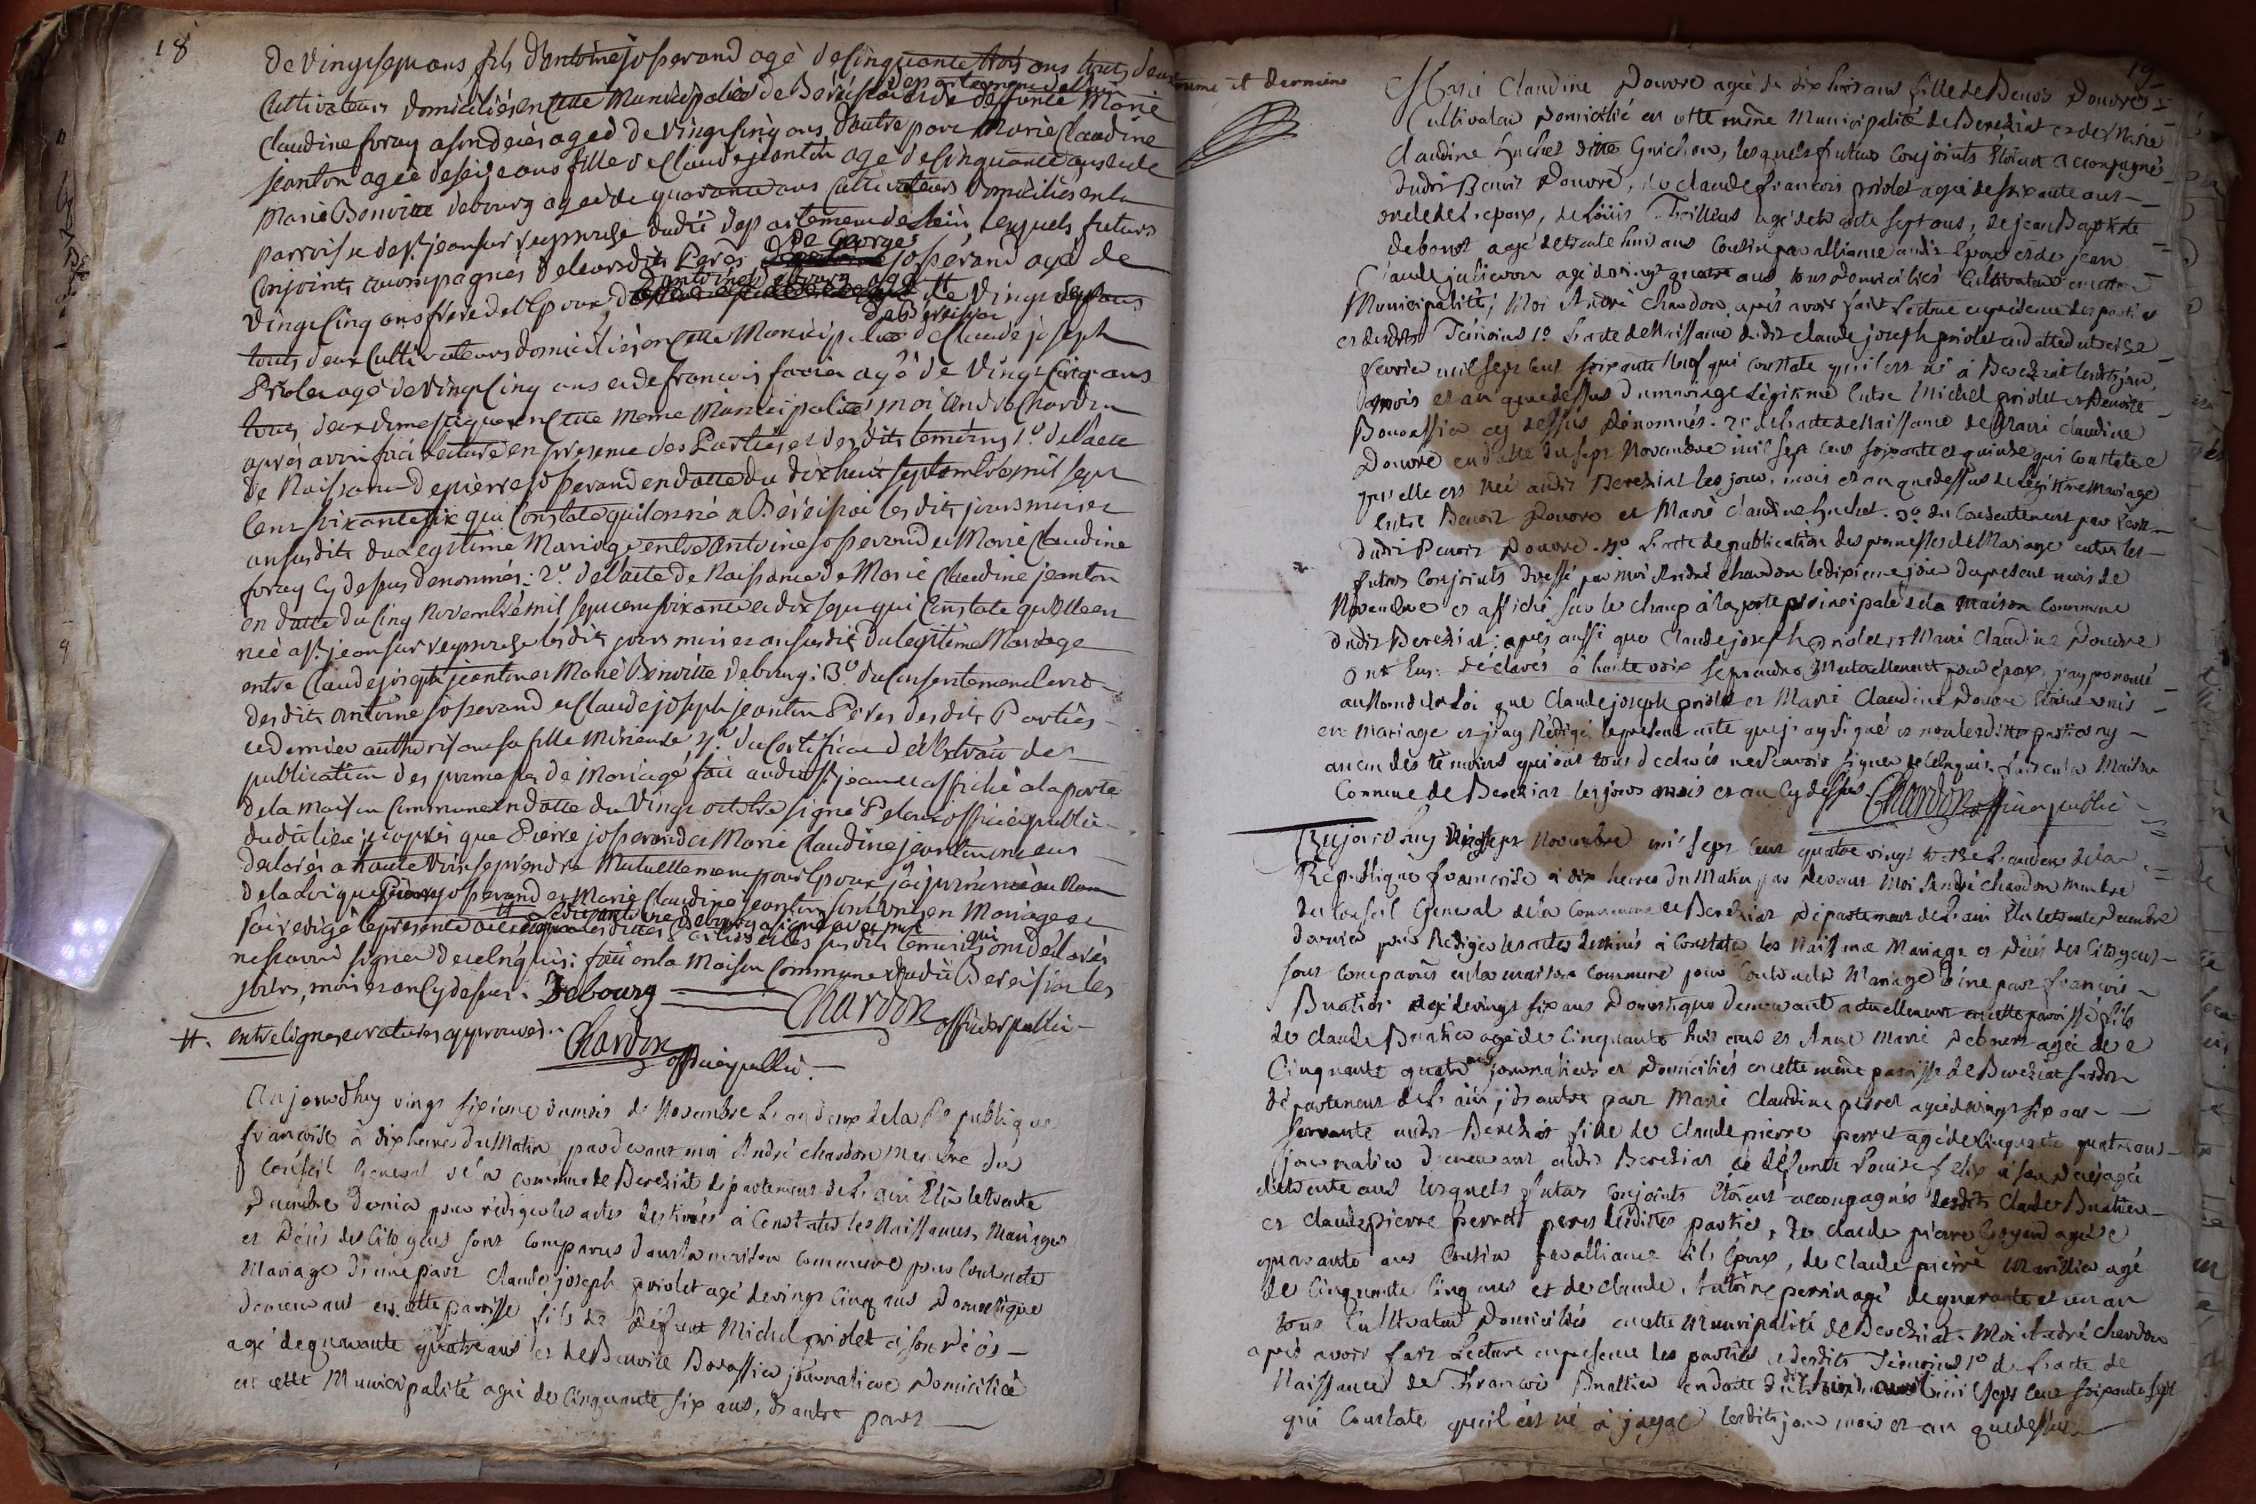 18
de vingt sept ans fils d'antoine josserand agé de cinquante trois ans touts deux
cultivateurs domiciliés en cette Municipalité de Béréisiat departement de lain et de deffunte Marie
Claudine foray a son decès agéé de vingt cinq ans, d'autre part Marie Claudine
jeanton agéé de seize ans fille de Claude jeanton agé de cinquante ans et de
Marie Benoitte debourg agéé de quarante ans cultivateurs domiciliés en la
parroisse de st. jean sur reyssouze dudit departement de lain lesquels futurs
Conjoints accompagnés de leursdits Peres de Georges josserand agé de
vingt cinq ans frère de l'Epoux d'antoine debourg agé de vingt sept ans
touts deux cultivateurs domiciliés en cette Municipalité de Bereisia de Claude joseph
Priolet agé de vingt cinq ans et de françois favier agé de vingt cinq ans
touts deux domestiques en cette meme Municipalité, moi andré Chardon
après avoir fait lecture en présence des Parties et desdits temoins 1o. de l'acte
de Naissance de pierre josserand en datte du dix huit septembre mil sept
cent soixante six qui Constate qu'il est né a Béréisiat lesdits jours mois et
an susdits du Legitime Mariage entre antoine josserand et Marie Claudine
foray cy dessus denommés: 2o. de l'acte de Naissance de Marie Claudine jeanton
en datte du cinq Novembre mil sept cent soixante et dix sept qui Constate qu'elle est
néé a st. jean sur reyssouze lesdits jours mois et an susdit du legitime Mariage
entre Claude joseph jeanton et Marie Benoitte debourg: 3o. du Consentement
desdits antoine josserand et Claude joseph jeanton Pères desdits Parties
ce dernier authorisant sa fille Mineure, 4o. du Certificat d'Extrait de
publication des promesses de Mariage fait audit st jean et affiché a la porte
de la maison Commune en datte du vingt octobre signé Pelour officier public
dudit lieu; et après que Pierre josserand et Marie Claudine jeanton ont eut
declarés a haute voix se prendre Mutuellement pour Epoux j'ai prononcé au Nom
de la Loi que Pierre josserand et Marie Claudine jeanton sont unis en Mariage et
j'ai redigé le present acte ledit antoine debourg a signé avec moi et les susdits temoins qui ont déclarés
ne scavoir signer de ce enquis; fait en la Maison Commune dudit Bereisiat les
jours, mois et an cy dessus. Debourg Chardon officier public
#. entrelignes et ratures approuvés. Chardon officier public
Aujourdhuy vingt sixieme dumois de Novembre L'an deux de la République
françoise à dix heures du Matin, par devant moi André chardon membre du
Conseil General de la commune de Bereziat departement de L'ain Elu le trente
Decembre dernier pour rédiger les actes destinés à Constater les Naissances, Mariages
et Décès des Citoyens sont comparus dans la maison commune pour Contracter
Mariage d'une part Claude joseph priolet agé de vingt Cinq ans Domestique
demeurant en cette parroisse fils de Défunt Michel priolet à son décès
agé de quarante quatre ans et de Benoite Bovassier journaliere Domiciliée
en cette Municipalité agéé de Cinquante six ans, d'autre part
et derniere
19
Marie Claudine Douvre agéé de dix huit ans fille de Benoit Douvre
Cultivateur Domicilié en cette même Municipalité de Bereziat et de Marie
Claudine huchet ditte Guichon, lesquels futurs Conjoints Etoient accompagnés
dudit Benoit Douvre, de claude francois priolet agé de soixante ans
oncle de L'epoux, de Louis Tseillius agé de trente sept ans, de jean Baptiste
debenet agé de trente huit ans Cousin par alliance audit Epoux et de jean
Claude agé de vingt quatre ans tous domiciliés cultivateurs en cette
Municipalité; Moi André chardon après avoir fait Lecture en présence des parties
et desdits Temoins 1o L'acte de Naissance dudit claude joseph priolet en datte du treize
fevrier mil sept cent soixante Neuf qui constate qu'il est né à Bereziat lesdits jour
mois et an que dessus du mariage Légitime Entre Michel priolet et Benoite
Bovassier cy dessus Dénommés. 2o de L'acte de Naissance de Marie Claudine
Douvre en datte du sept Novembre mil sept cent soixante et quinze qui constate
qu'elle est néé audit Bereziat les jour, mois et an que dessus de Légitime Mariage
entre Benoit Douvre et Marie Claudine huchet. 3o du Consentement
dudit Benoit Douvre. 4o L'acte de publication des promesses de Mariage entre les
futurs Conjoints dressé par moi André chardon le dixieme jour du present mois de
Novembre et affiché sur le champ à la porte principale de la Maison Commune
dudit Bereziat; après aussi que Claude joseph priolet et Marie Claudine Douvre
ont Eus déclarés à haute voix se prendre Mutuellement pour époux, j'ay prononcé
au Nom de la Loi que Claude joseph priolet et Marie Claudine Douvre Etoient unis
en mariage et j'ay Rédigé le présent acte que j'ay signé et non lesdittes parties ny
aucun des témoins qui ont tous déclarés ne Scavoir signer de Ce enquis. fait en la Maison
Commune de Bereziat les jours mois et an cy dessus. Chardon officier public
Aujourdhuy vingt sept Novembre mil sept cent quatre vingt treize L'an deux de la
République francoise à dix heures du Matin par devant Moi André chardon membre
du Conseil General de la Commune de Bereziat Département de L'ain Elu le trente Decembre
dernier pour Rediger les actes destinés à Constater les Naissance Mariage et Décès des Citoyens
sont comparus en la maison commune pour Contracter Mariage d'une part francois
Buatier agé de vingt six ans Domestique demeurant actuellement en cette paroisse fils
de claude Buatier agé de Cinquante huit ans et Anne Marie Debenet agéé de
Cinquante quatre ans journaliers et Domiciliés en cette même paroisse de Bereziat susdit
département de L'ain; d'autre part Marie Claudine perret agéé de vingt six ans
servante audit Bereziat fille de claude pierre perret agé de Cinquante quatre ans
journalier demeurant audit Bereziat et défunte Louise felix à son décès agéé
de trente ans lesquels futurs Conjoints Etoient accompagnés desdits Claude Buatier
et claude pierre perret peres desdittes parties, de claude pierre agé de
quarante ans Cousin par alliance dudit Epoux, de claude pierre Marillier agé
de Cinquante Cinq ans et de claude Antoine perrin agé de quarante et un an
tous Cultivateurs Domiciliés en cette Municipalité de Bereziat. Moi André Chardon
après avoir fait Lecture en presence des parties et desdits Témoins 1o de L'acte de
Naissance de Francois Buattier en datte du mil sept cent soixante sept
qui Constate qu'il est né à jayac lesdits jour mois et an que dessus